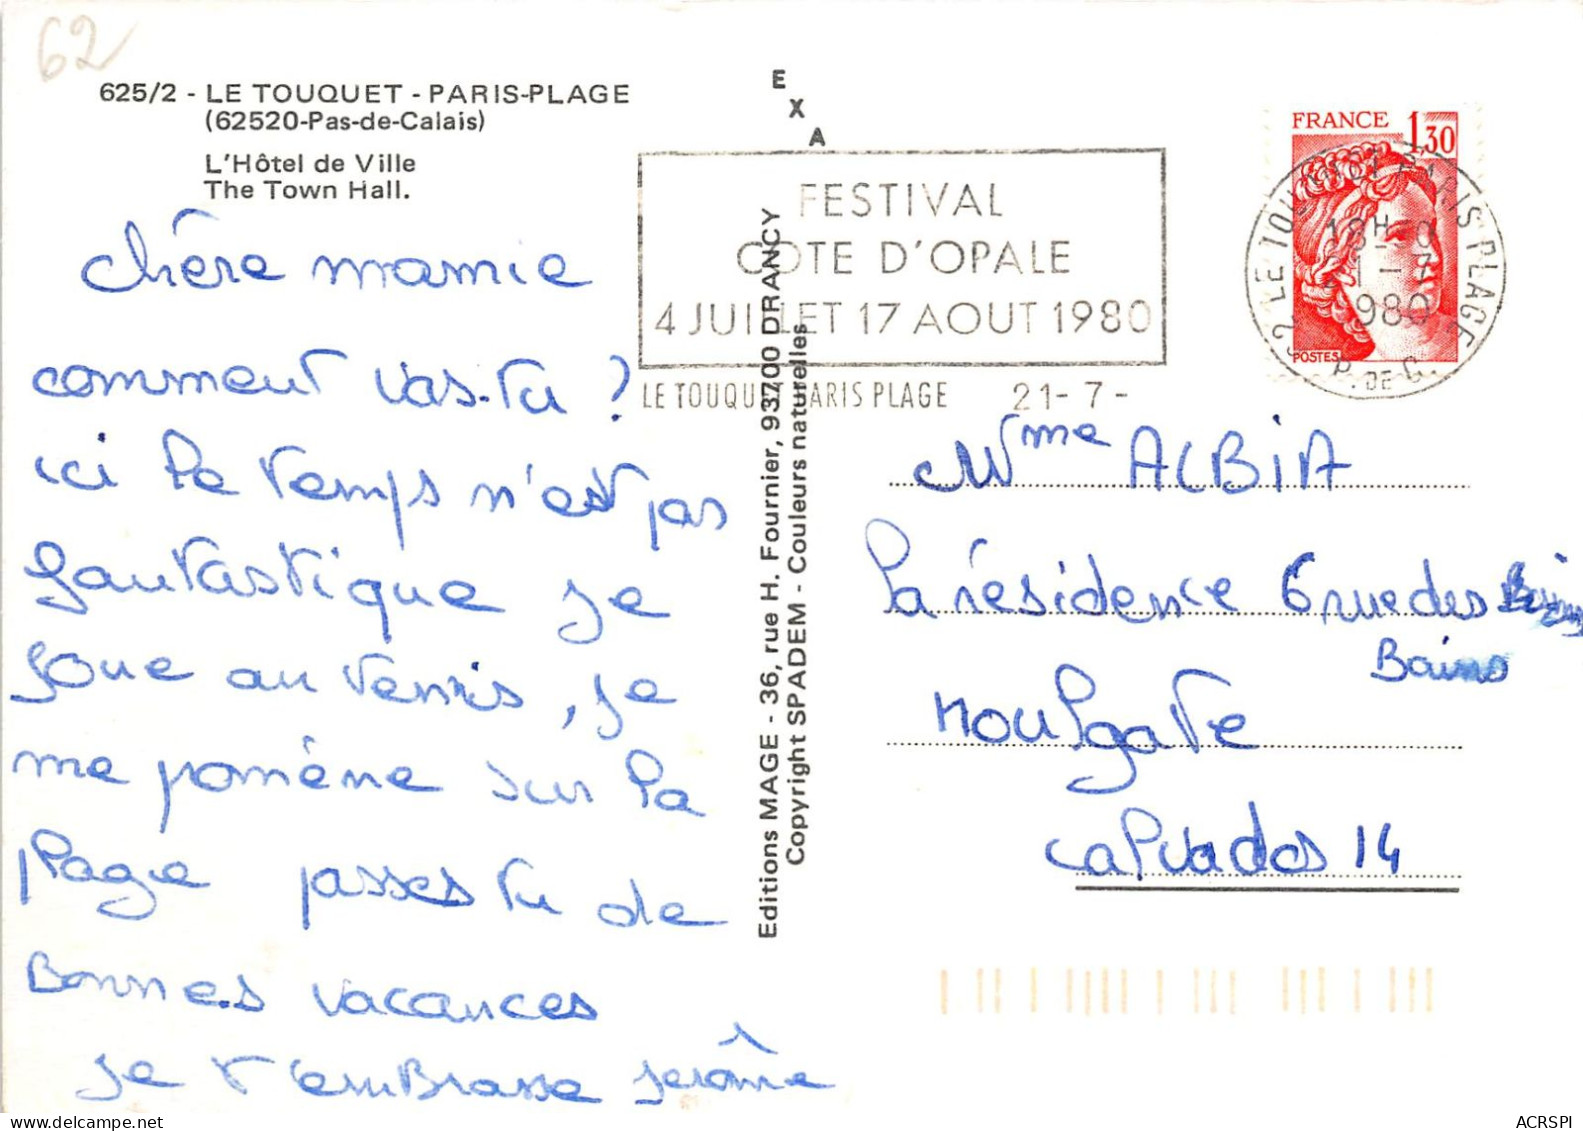 62
625/2 - LE TOUQUET - PARIS-PLAGE
(62520-Pas-de-Calais)
L'Hôtel de Ville
The Town Hall.
chère mamie
comment vas-tu ?
ici le temps n'est pas
fantastique je
joue au tennis, je
me pomène sur la
plage passes tu de
Bonnes vacances
je t'emBrasse jerôme
EXA
Editions MAGE - 36, rue H. Fournier, 93700 DRANCY
Copyright SPADEM - Couleurs naturelles
FESTIVAL
COTE D'OPALE
4 JUILLET 17 AOUT 1980
LE TOUQUET PARIS PLAGE 21-7-
FRANCE 1,30
POSTES
62 LE TOUQUET PARIS PLAGE
21-7
1980
P. DE C.
Mme ALBIA
la résidence 6 rue des
Bains
Houlgate
calvados 14
www.delcampe.net
ACRSPI